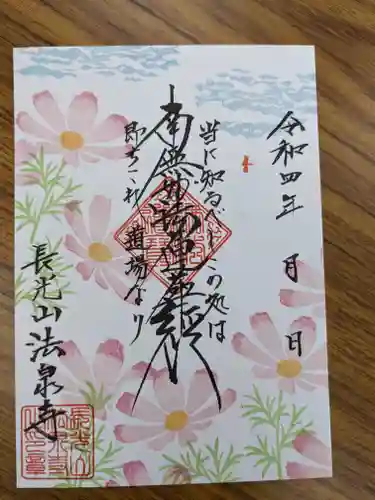 令和四年 月 日
当に知るべしこの処は
南無妙法蓮華経
即ちこれ道場なり
長光山 法泉寺